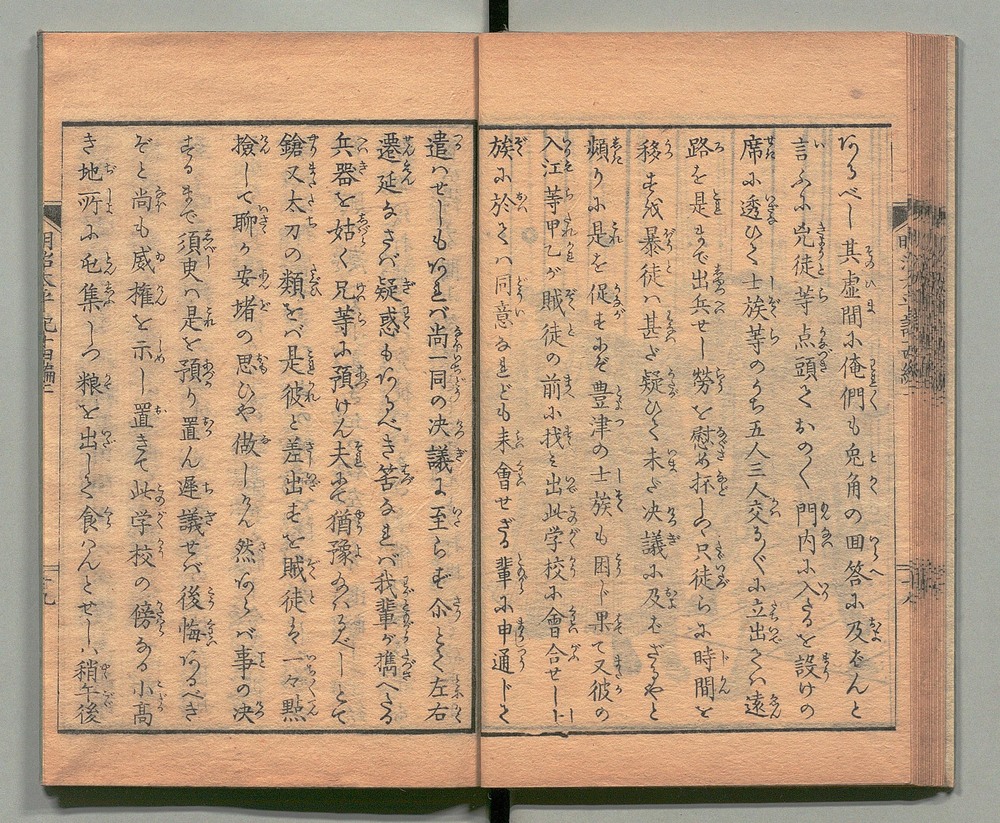 あるべし其虚間に俺們も兎角の回答に及ばんと
言ふに兇徒等点頭ておの〳〵門内に入たるを設けの
席に透ひて士族等のうち五人三人交る〴〵に立出ては遠
路を是まで出兵せし労を慰め抔しつ只徒らに時間を
移すを暴徒ハ甚だ疑ひて未だ决議に及ばざるやと
頻りに是を促すにぞ豊津の士族も困じ果て又彼の
入江等甲乙が賊徒の前に找み出此学校に會合せし士
族に於てハ同意なれども来會せざる輩に申通じて
遣はせしもあれバ尚一同の决議に至らず尒とて左右
遷延なさバ疑惑もあるべき筈なれバ我輩が携へたる
兵器を姑く兄等に預けん夫にて猶豫あはるべしとて
鎗又太刀の類をバ是彼と差出すを賊徒は一々點
撿して聊か安堵の思ひや做しけん然あらバ事の决
するまで須臾ハ是を預り置ん遅議せバ後悔あるべき
ぞと尚も威権を示し置きて此学校の傍なる小高
き地所に屯集しつ粮を出して食はんとせしハ稍午後
明治太平記十四編二